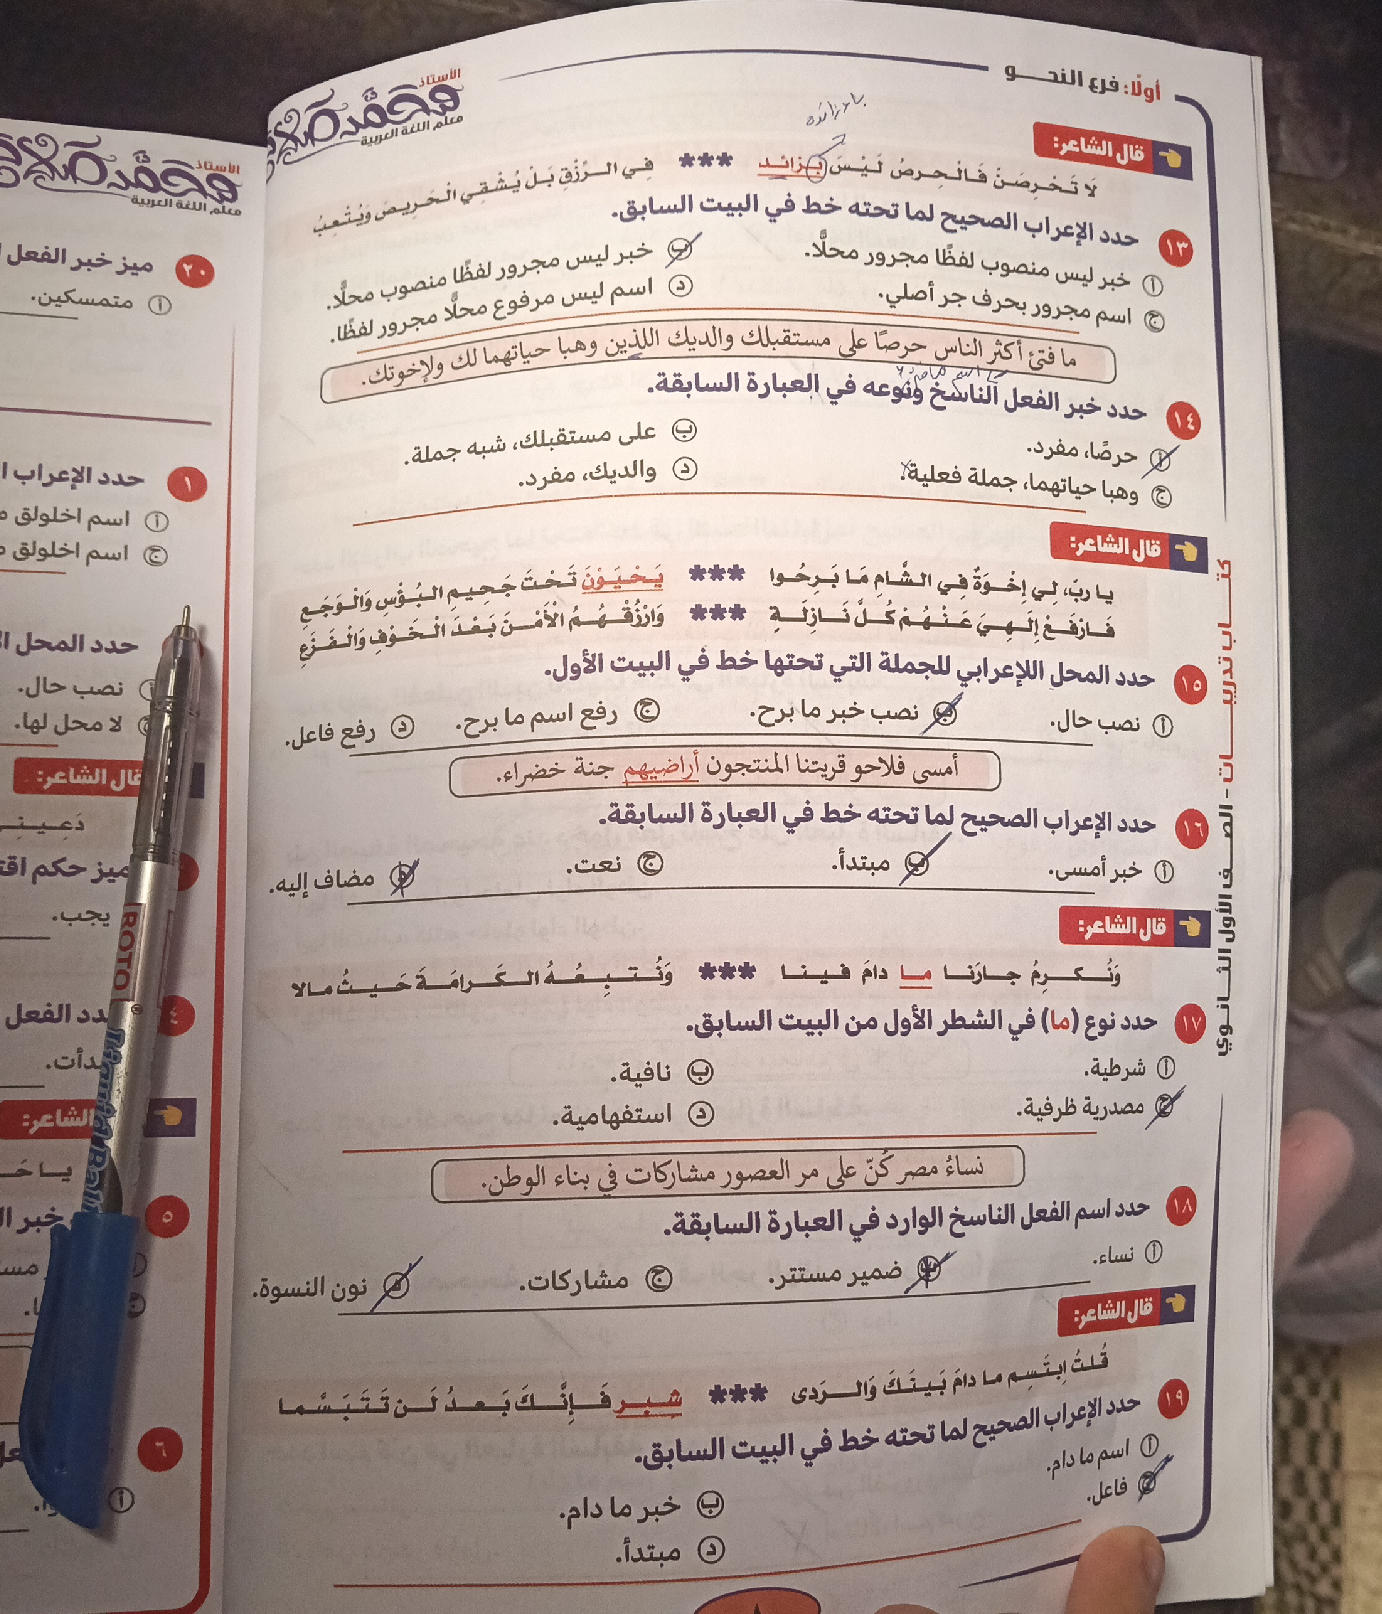 أولًا: فرع النحـــو
الأستاذ
محمد صلاح
معلم اللغة العربية
باء زائدة
قال الشاعر:
لَا تَحْرِصَنْ فَالْحِرصُ لَيْسَ بِزائد *** فِي الرِّزْقِ بَلْ يُشْقِي الْحَرِيصَ وَيُتْعِبُ
١٣ حدد الإعراب الصحيح لما تحته خط في البيت السابق.
أ خبر ليس منصوب لفظًا مجرور محلًّا. ب خبر ليس مجرور لفظًا منصوب محلًّا.
ج اسم مجرور بحرف جر أصلي. د اسم ليس مرفوع محلًّا مجرور لفظًا.
ما فتئ أكثر الناس حرصًا على مستقبلك والديك اللذين وهبا حياتهما لك ولإخوتك.
١٤ حدد خبر الفعل الناسخ ونوعه في العبارة السابقة.
أ حرصًا، مفرد. ب على مستقبلك، شبه جملة.
ج وهبا حياتهما، جملة فعلية. د والديك، مفرد.
قال الشاعر:
يا ربِّ، لِي إخْوَةٌ فِي الشَّامِ مَا بَرِحُوا *** يَحْيَوْنَ تَحْتَ جَحِيمِ البُؤْسِ وَالْوَجَعِ
فَارْفَعْ إلَهِيَ عَنْهُمْ كُلَّ نَازِلَةٍ *** وَارْزُقْهُمُ الْأَمْنَ بَعْدَ الْخَوْفِ وَالْفَزَعِ
١٥ حدد المحل اللإعرابي للجملة التي تحتها خط في البيت الأول.
أ نصب حال. ب نصب خبر ما برح. ج رفع اسم ما برح. د رفع فاعل.
أمسى فلاحو قريتنا المنتجون أراضيهم جنة خضراء.
١٦ حدد الإعراب الصحيح لما تحته خط في العبارة السابقة.
أ خبر أمسى. ب مبتدأ. ج نعت. د مضاف إليه.
قال الشاعر:
وَنُكرِمُ جارَنا ما دامَ فينا *** وَنُتبِعُهُ الكَرامَةَ حَيثُ مالا
١٧ حدد نوع (ما) في الشطر الأول من البيت السابق.
أ شرطية. ب نافية.
ج مصدرية ظرفية. د استفهامية.
نساءُ مصر كُنّ على مر العصور مشاركات في بناء الوطن.
١٨ حدد اسم الفعل الناسخ الوارد في العبارة السابقة.
أ نساء. ب ضمير مستتر. ج مشاركات. د نون النسوة.
قال الشاعر:
قُلتُ اِبتَسِم ما دامَ بَينَكَ وَالرَدى *** شبر فَإِنَّكَ بَعدُ لَن تَتَبَسَّما
١٩ حدد الإعراب الصحيح لما تحته خط في البيت السابق.
أ اسم ما دام. ب خبر ما دام.
ج فاعل. د مبتدأ.
كتـــاب تدريبـــات - الصـــف الأول الثانـــوي
الأستاذ
محمد صلاح
معلم اللغة العربية
٢٠ ميز خبر الفعل
أ متمسكين.
١ حدد الإعراب
أ اسم اخلولق
ج اسم اخلولق
حدد المحل
نصب حال.
لا محل لها.
قال الشاعر:
ميز حكم
يجب.
٤ الفعل
قال الشاعر:
٥ خبر
٦
أ
ROTO